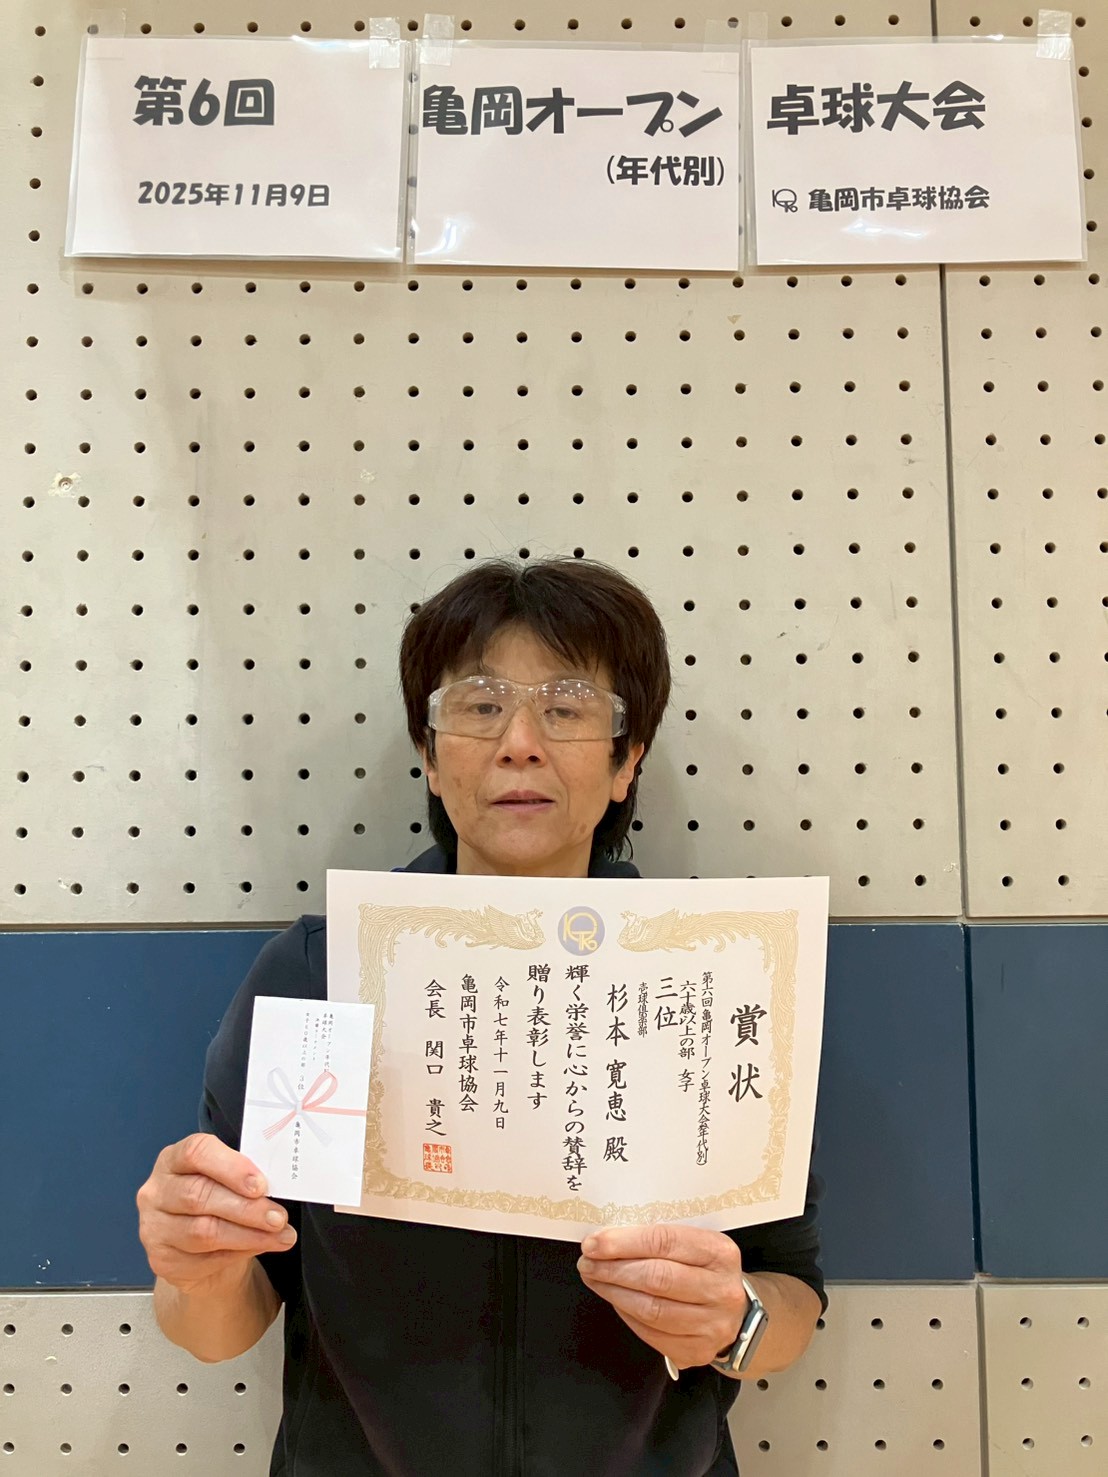 第6回
2025年11月9日
亀岡オープン
(年代別)
卓球大会
亀岡市卓球協会
賞状
第六回亀岡オープン卓球大会(年代別)
六十歳以上の部 女子
三位
壱球倶楽部
杉本 寛恵 殿
輝く栄誉に心からの賛辞を
贈り表彰します
令和七年十一月九日
亀岡市卓球協会
会長 関口 貴之
卓球大会
3位
亀岡市卓球協会